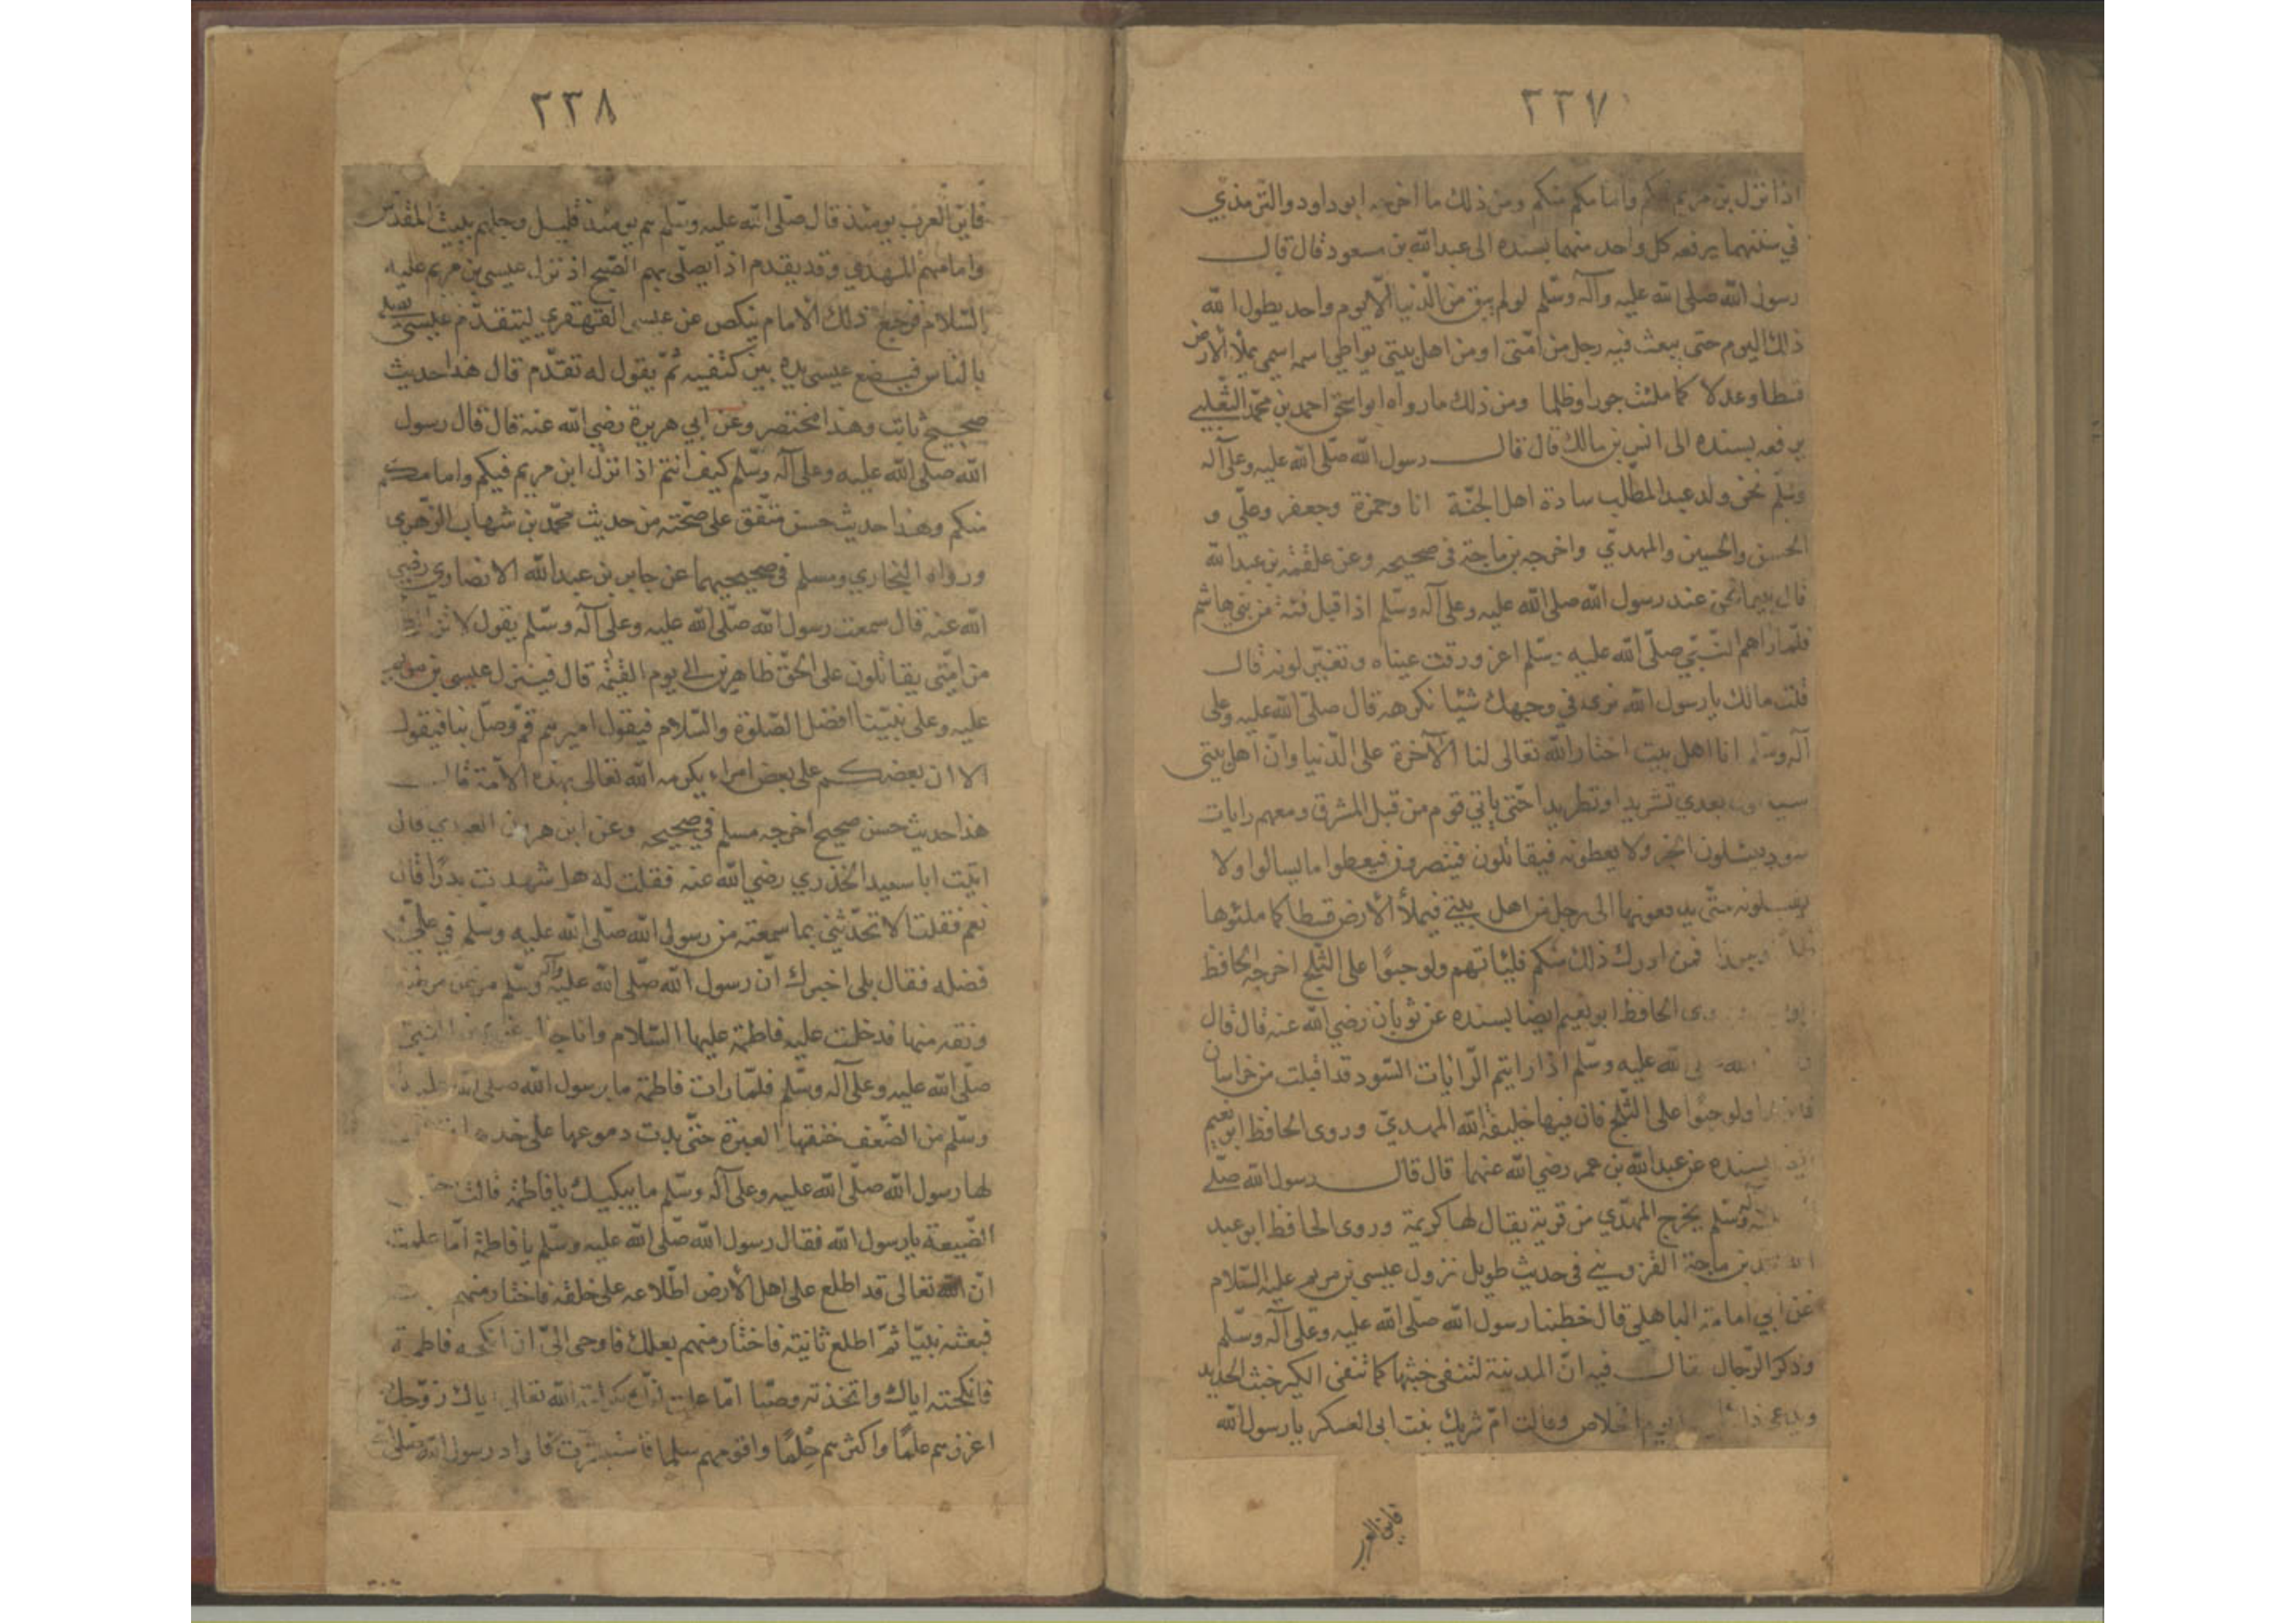 ٢٣٧
اذا نزل بن مريم فيكم وامامكم منكم ومن ذلك ما اخرجه ابو داود والترمذي
في سننهما يرفعه كل واحد منهما بسنده الى عبد الله بن مسعود قال قال
رسول الله صلى الله عليه وآله وسلم لو لم يبق من الدنيا الا يوم واحد يطول الله
ذلك اليوم حتى يبعث فيه رجل من امتى او من اهل بيتى يواطي اسمه اسمي يملأ الأرض
قسطا وعدلا كما ملئت جورا وظلما ومن ذلك ما رواه ابو اسحق احمد بن محمد الثعلبي
يرفعه بسنده الى انس بن مالك قال قال رسول الله صلى الله عليه وعلى آله
وسلم نحن ولد عبد المطلب سادة اهل الجنة انا وحمزة وجعفر وعلي و
الحسن والحسين والمهدي واخرجه بن ماجة في صحيحه وعن علقمة بن عبد الله
قال بينما نحن عند رسول الله صلى الله عليه وعلى آله وسلم اذا قبل فئة من بني هاشم
فلما رآهم النبي صلى الله عليه وسلم اغرورقت عيناه وتغير لونه قال
قلت مالك يا رسول الله نرى في وجهك شيئا نكرهه قال صلى الله عليه وعلى
آله وسلم انا اهل بيت اختار الله تعالى لنا الآخرة على الدنيا وان اهل بيتى
بعدي تشريدا وتطريدا حتى يأتي قوم من قبل المشرق ومعهم رايات
سود يسئلون الخير ولا يعطونه فيقاتلون فينصرون فيعطوا ما يسالوا ولا
يقبلونه حتى يدفعونها الى رجل من اهل بيتي فيملأ الأرض قسطا كما ملئوها
فمن ادرك ذلك منكم فليأتهم ولو حبوا على الثلج اخرجه الحافظ
الحافظ ابو نعيم ايضا بسنده عن ثوبان رضي الله عنه قال قال
الله عليه وسلم اذا رايتم الرايات السود قد اقبلت من خراسان
ولو حبوا على الثلج فان فيها خليفة الله المهدي وروى الحافظ ابو نعيم
بسنده عن عبد الله بن عمر رضي الله عنهما قال قال رسول الله صلى
وآله وسلم يخرج المهدي من قرية يقال لها كريمة وروى الحافظ ابو عبد
بن ماجة القزويني في حديث طويل نزول عيسى بن مريم عليه السلام
عن ابي امامة الباهلي قال خطبنا رسول الله صلى الله عليه وعلى آله وسلم
وذكر الرجال قال فيه ان المدينة لتنفي خبثها كما تنفى الكير خبث الحديد
يوم الخلاص وقالت ام شريك بنت ابى العسكر يا رسول الله
فاين العرب
٢٣٨
فاين العرب يومئذ قال صلى الله عليه وسلم هم يومئذ قليل وجلهم ببيت المقدس
وامامهم المهدي وقد يقدم اذا يصلى بهم الصبح اذ نزل عيسى بن مريم عليه
السلام فرجع ذلك الامام ينكص عن عيسى القهقري ليتقدم عيسى يصلي
بالناس فيضع عيسى يده بين كتفيه ثم يقول له تقدم قال هذا حديث
صحيح ثابت وهذا مختصر وعن ابي هريرة رضي الله عنه قال قال رسول
الله صلى الله عليه وعلى آله وسلم كيف انتم اذا نزل ابن مريم فيكم وامامكم
منكم وهذا حديث حسن متفق على صحته من حديث محمد بن شهاب الزهري
ورواه البخاري ومسلم في صحيحيهما عن جابر بن عبد الله الانصاري رضي
الله عنه قال سمعت رسول الله صلى الله عليه وعلى آله وسلم يقول لا تزال
من امتى يقاتلون على الحق ظاهرين الى يوم القيمة قال فينزل عيسى بن مريم
عليه وعلى نبينا افضل الصلوة والسلام فيقول اميرهم قم وصل بنا فيقول
الا ان بعضكم على بعض امراء يكرمه الله تعالى بهذه الأمة قال
هذا حديث حسن صحيح اخرجه مسلم في صحيحه وعن ابن هرون العبدي قال
اتيت ابا سعيد الخدري رضي الله عنه فقلت له هل شهدت بدرا قال
نعم فقلت الا تحدثني بما سمعته من رسول الله صلى الله عليه وسلم في علي و
فضله فقال بلى اخبرك ان رسول الله صلى الله عليه وآله وسلم مرض مرضة
ونقه منها فدخلت عليه فاطمة عليها السلام وانا جالس عن يمين النبي
صلى الله عليه وعلى آله وسلم فلما رات فاطمة ما برسول الله صلى الله عليه
وسلم من الضعف خنقها العبرة حتى بدت دموعها على خدها
لها رسول الله صلى الله عليه وعلى آله وسلم ما يبكيك يا فاطمة قالت
الضيعة يا رسول الله فقال رسول الله صلى الله عليه وسلم يا فاطمة اما علمت
ان الله تعالى قد اطلع على اهل الأرض اطلاعه على خلقه فاختار منهم
فبعثه نبيا ثم اطلع ثانية فاختار منهم بعلك فاوحى الي ان انكحه فاطمة
فانكحته اياك واتخذته وصيا اما علمت الله تعالى اياك زوجك
اغزرهم علما واكثرهم حلما واقومهم سلما فاستبشرت فاراد رسول الله صلى الله